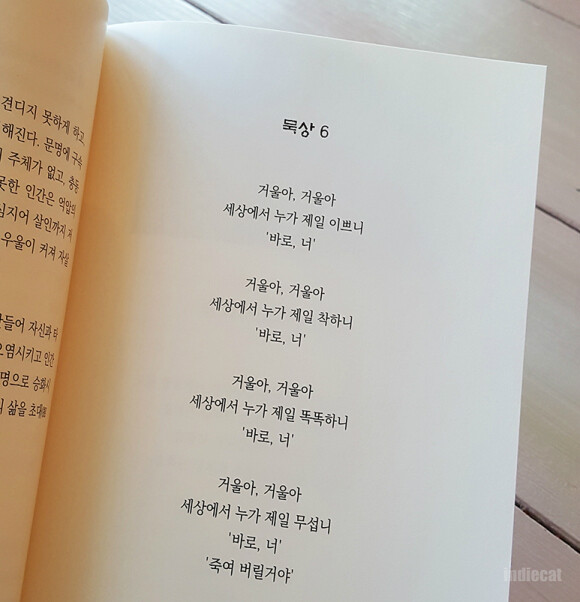 견디지 못하게 하고,
해진다. 문명에 구속
주체가 없고, 충동
못한 인간은 억압의
심지어 살인까지 저
우울이 커져 자살
만들어 자신과 타
오염시키고 인간
명으로 승화시
삶을 초대
묵상 6
거울아, 거울아
세상에서 누가 제일 이쁘니
'바로, 너'
거울아, 거울아
세상에서 누가 제일 착하니
'바로, 너'
거울아, 거울아
세상에서 누가 제일 똑똑하니
'바로, 너'
거울아, 거울아
세상에서 누가 제일 무섭니
'바로, 너'
'죽여 버릴거야'
indiecat